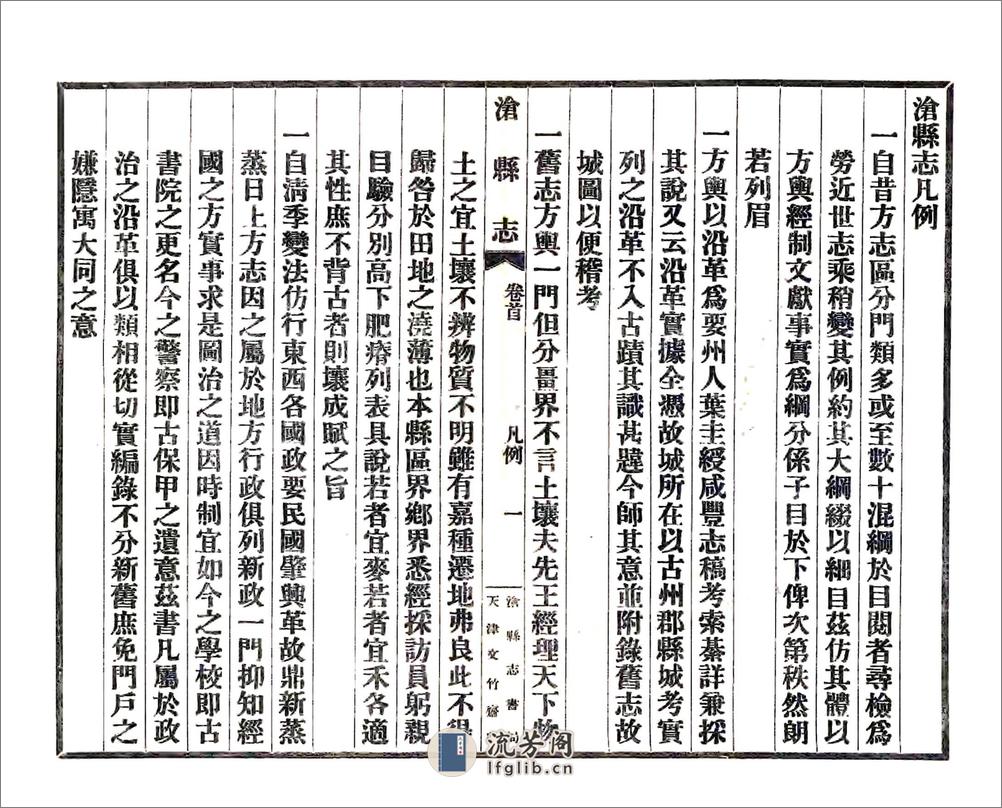 滄縣志凡例
一自昔方志區分門類多或至數十混綱於目閱者尋檢爲
勞近世志乘稍變其例約其大綱綴以細目茲仿其體以
方輿經制文獻事實爲綱分係子目於下俾次第秩然朗
若列眉
一方輿以沿革爲要州人葉圭綬咸豐志稿考索綦詳兼採
其說又云沿革實據全憑故城所在以古州郡縣城考實
列之沿革不入古蹟其識甚韙今師其意並附錄舊志故
城圖以便稽考
一舊志方輿一門但分畺界不言土壤夫先王經理天下物
滄縣志 卷首 凡例 一 滄縣志書 天津文竹齋
土之宜土壤不辨物質不明雖有嘉種遷地弗良此不得
歸咎於田地之澆薄也本縣區界鄉界悉經採訪員躬親
目驗分別高下肥瘠列表具說若者宜麥若者宜禾各適
其性庶不背古者則壤成賦之旨
一自清季變法仿行東西各國政要民國肇興革故鼎新蒸
蒸日上方志因之屬於地方行政俱列新政一門抑知經
國之方實事求是圖治之道因時制宜如今之學校即古
書院之更名今之警察即古保甲之遺意茲書凡屬於政
治之沿革俱以類相從切實編錄不分新舊庶免門戶之
嫌隱寓大同之意
流芳閣
lfglib.cn